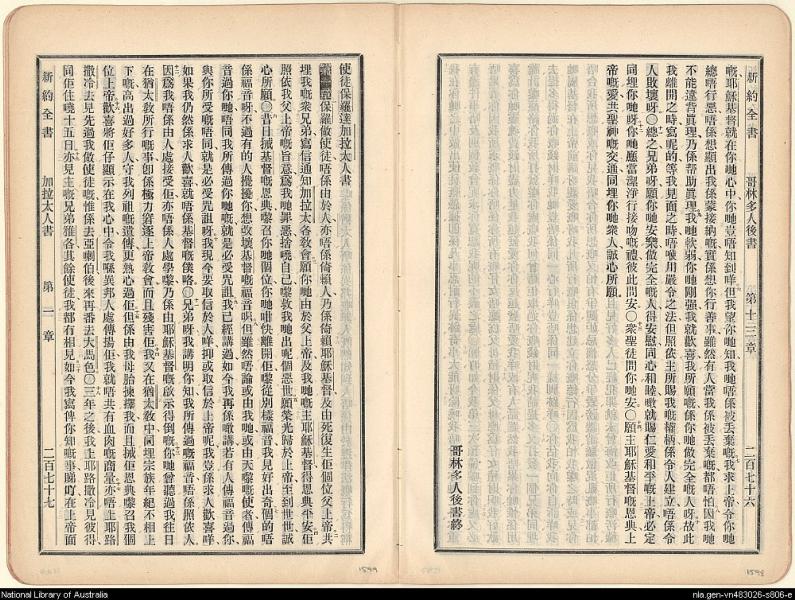 新約全書 哥林多人後書 第十三章 二百七十六
嘅耶穌基督就在你哋心中你哋豈唔知到咩但我望你哋知我哋唔係被丟棄嘅我求上帝令你哋
總唔行惡唔係想顯出我係蒙接納嘅實係想你行善事雖然有人當我係被丟棄嘅都唔怕因我哋
不能違背眞理乃係帮助眞理我哋軟弱你哋剛强我就歡喜我所願嘅係你哋做完全嘅人呀故此
我離開之時寫呢的等我見面之時唔使用嚴令之法但照依主所賜我嘅權柄係令人建立唔係令
人敗壞呀〇總之兄弟呀願你哋安樂做完全嘅人得安慰同心和睦噉就賜仁愛和平嘅上帝必定
同埋你哋呀你哋應當潔淨行接吻嘅禮彼此問安〇衆聖徒問你哋安〇願主耶穌基督嘅恩典上
帝嘅愛共聖神嘅交通同埋你哋衆人誠心所願
哥林多人後書終
使徒保羅達加拉太人書
第一章保羅做使徒唔係由於人亦唔係倚賴人乃係倚賴耶穌基督及由死復生佢個位父上帝共
埋我嘅衆兄弟寫信通知加拉太各教會願你哋由於父上帝及我哋嘅主耶穌基督得恩典平安佢
照依我父上帝嘅旨意爲我哋罪惡捨嘵自己嚟救我哋出呢個惡世願榮光歸於上帝至到世世誠
心所願〇昔日㨢基督嘅恩典嚟召你哋個位你哋咁快離開佢嚟從別樣福音我見好出奇個的唔
係福音呀不過有的人攪擾你想改壞基督嘅福音啫但雖然唔論或由我哋或由天嚟嘅使者傳福
音過你哋唔同我所傳過你哋嘅就是必受咒詛我已經講過如今我再係噉講若有人傳福音過你
與你所受嘅唔同就是必受咒詛呀我現今要取信於人咩抑或取信於上帝呢我豈係求人歡喜咩
如果我仍然係求人歡喜就唔係基督嘅僕咯〇兄弟呀我講明你知我所傳過嘅福音唔係照依人
因爲我唔係由人處接受佢亦唔係人處學嚟乃係由耶穌基督嘅啟示得到嘅你哋曾聽過我往日
在猶太教所行嘅事卽係極力窘逐上帝教會而且殘害佢我又在猶太教中同埋宗族年紀不相上
下嘅高出過好多人守我列祖嘅遺傳更熱心過佢但係由我母胎揀擇我而且㨢佢恩典嚟召我個
位上帝歡喜將佢仔顯示在我心中令我喺異邦人處傳揚佢我就唔共有血肉嘅商量亦唔上耶路
撒冷去見先過我做使徒嘅惟係去亞喇伯後來再番去大馬色〇三年之後我上耶路撒冷見彼得
同佢住嘵十五日亦見主嘅兄弟雅各其餘使徒我都冇相見如今我寫俾你知嘅事睇吖在上帝面
新約全書 加拉太人書 第一章 二百七十七
1599
1598
National Library of Australia
nla.gen-vn483026-s806-e